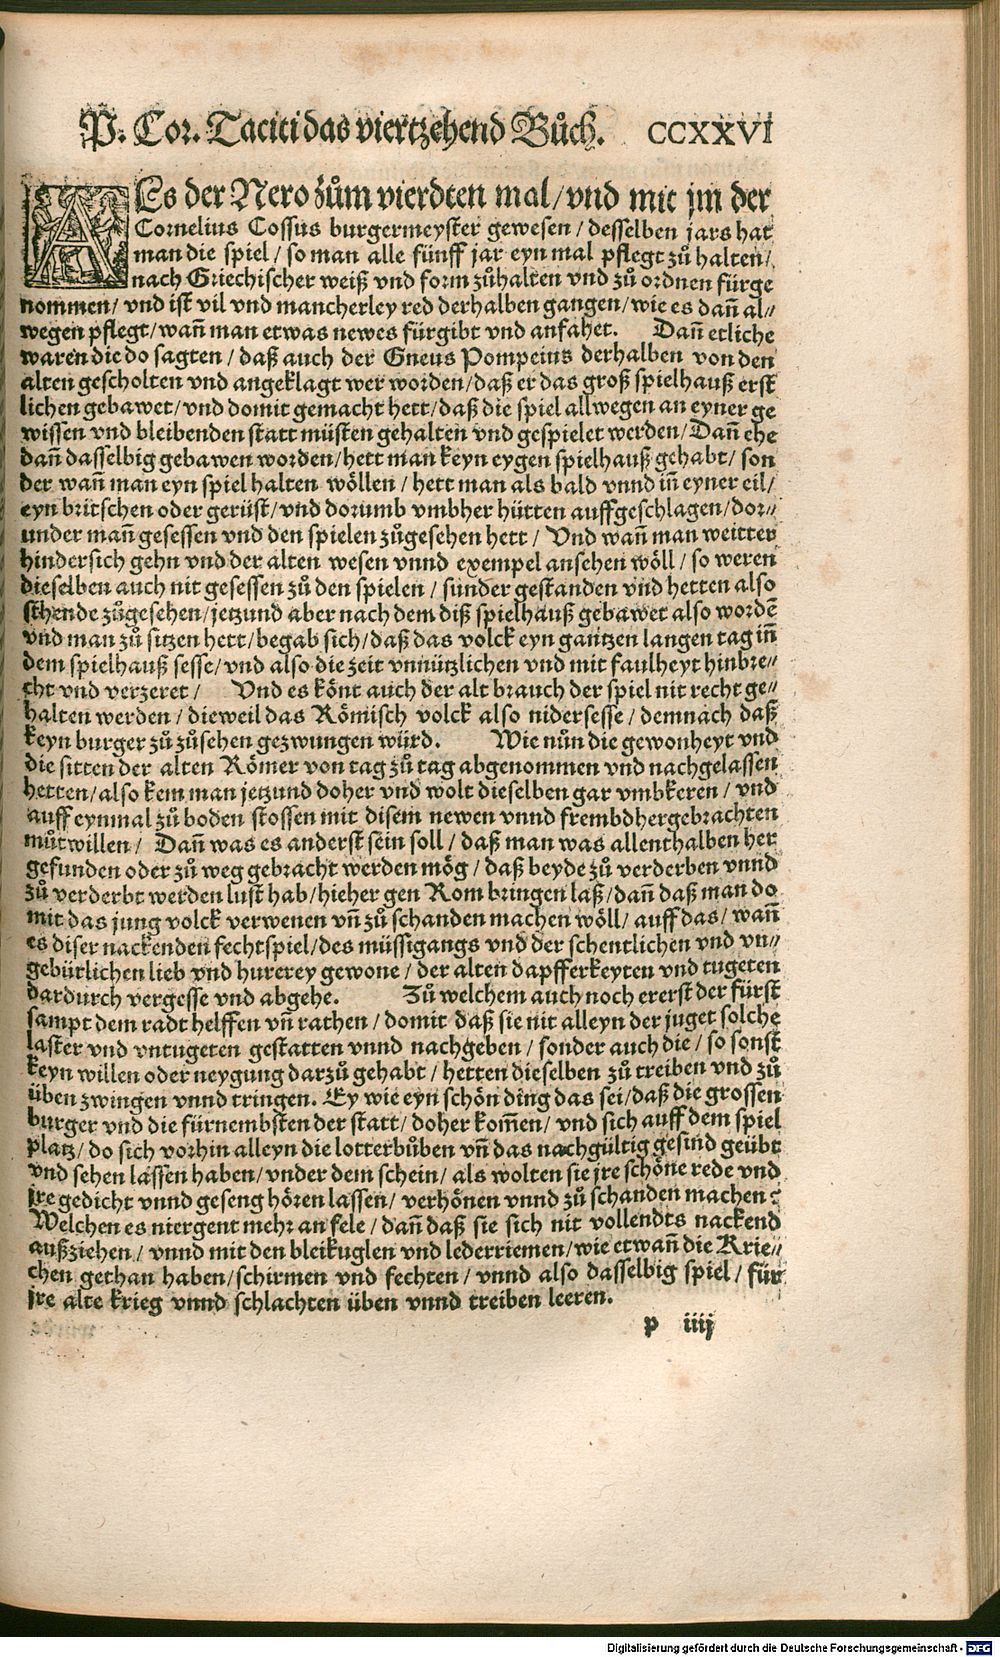 P. Cor. Taciti das viertzehend Bůch. CCXXVI
ALs der Nero zům vierdten mal/vnd mit jm der
Cornelius Cossus burgermeyster gewesen/desselben jars hat
man die spiel/so man alle fünff jar eyn mal pflegt zů halten/
nach Griechischer weiß vnd form zůhalten vnd zů ordnen fürge
nommen/vnd ist vil vnd mancherley red derhalben gangen/wie es dañ al⸗
wegen pflegt/wañ man etwas newes fürgibt vnd anfahet. Dañ etliche
waren die do sagten/daß auch der Gneus Pompeius derhalben von den
alten gescholten vnd angeklagt wer worden/daß er das groß spielhauß erst
lichen gebawet/vnd domit gemacht hett/daß die spiel allwegen an eyner ge
wissen vnd bleibenden statt müsten gehalten vnd gespielet werden/Dañ ehe
dañ dasselbig gebawen worden/hett man keyn eygen spielhauß gehabt/son
der wañ man eyn spiel halten wöllen/hett man als bald vnnd iñ eyner eil/
eyn britschen oder gerüst/vnd dorumb vmbher hütten auffgeschlagen/dor⸗
under mañ gesessen vnd den spielen zůgesehen hett/Vnd wañ man weitter
hindersich gehn vnd der alten wesen vnnd exempel ansehen wöll/so weren
dieselben auch nit gesessen zů den spielen/sunder gestanden vnd hetten also
stehende zůgesehen/jetzund aber nach dem diß spielhauß gebawet also wordē
vnd man zů sitzen hett/begab sich/daß das volck eyn gantzen langen tag iñ
dem spielhauß sesse/vnd also die zeit vnnützlichen vnd mit faulheyt hinbre⸗
cht vnd verzeret/ Vnd es könt auch der alt brauch der spiel nit recht ge⸗
halten werden/dieweil das Römisch volck also nidersesse/demnach daß
keyn burger zů zůsehen gezwungen würd. Wie nůn die gewonheyt vnd
die sitten der alten Römer von tag zů tag abgenommen vnd nachgelassen
hetten/also kem man jetzund doher vnd wolt dieselben gar vmbkeren/vnd
auff eynmal zů boden stossen mit disem newen vnnd frembdhergebrachten
můtwillen/ Dañ was es anderst sein soll/daß man was allenthalben her
gefunden oder zů weg gebracht werden mög/daß beyde zů verderben vnnd
zů verderbt werden lust hab/hieher gen Rom bringen laß/dañ daß man do
mit das jung volck verwenen vñ zů schanden machen wöll/auff das/wañ
es diser nackenden fechtspiel/des müssigangs vnd der schentlichen vnd vn⸗
gebürlichen lieb vnd hurerey gewone/der alten dapfferkeyten vnd tugeten
dardurch vergesse vnd abgehe. Zů welchem auch noch ererst der fürst
sampt dem radt helffen vñ rathen/domit daß sie nit alleyn der juget solche
laster vnd vntugeten gestatten vnnd nachgeben/sonder auch die/so sonst
keyn willen oder neygung darzů gehabt/hetten dieselben zů treiben vnd zů
üben zwingen vnnd tringen. Ey wie eyn schön ding das sei/daß die grossen
burger vnd die fürnembsten der statt/doher kom̃en/vnd sich auff dem spiel
platz/do sich vorhin alleyn die lotterbůben vñ das nachgültig gesind geübt
vnd sehen lassen haben/vnder dem schein/als wolten sie jre schöne rede vnd
jre gedicht vnnd geseng hören lassen/verhönen vnnd zů schanden machen?
Welchen es niergent mehr an fele/dañ daß sie sich nit vollendts nackend
außziehen/vnnd mit den bleikuglen vnd lederriemen/wie etwañ die Krie⸗
chen gethan haben/schirmen vnd fechten/vnnd also dasselbig spiel/für
jre alte krieg vnnd schlachten üben vnnd treiben leeren.
p iiij
Digitalisierung gefördert durch die Deutsche Forschungsgemeinschaft - DFG